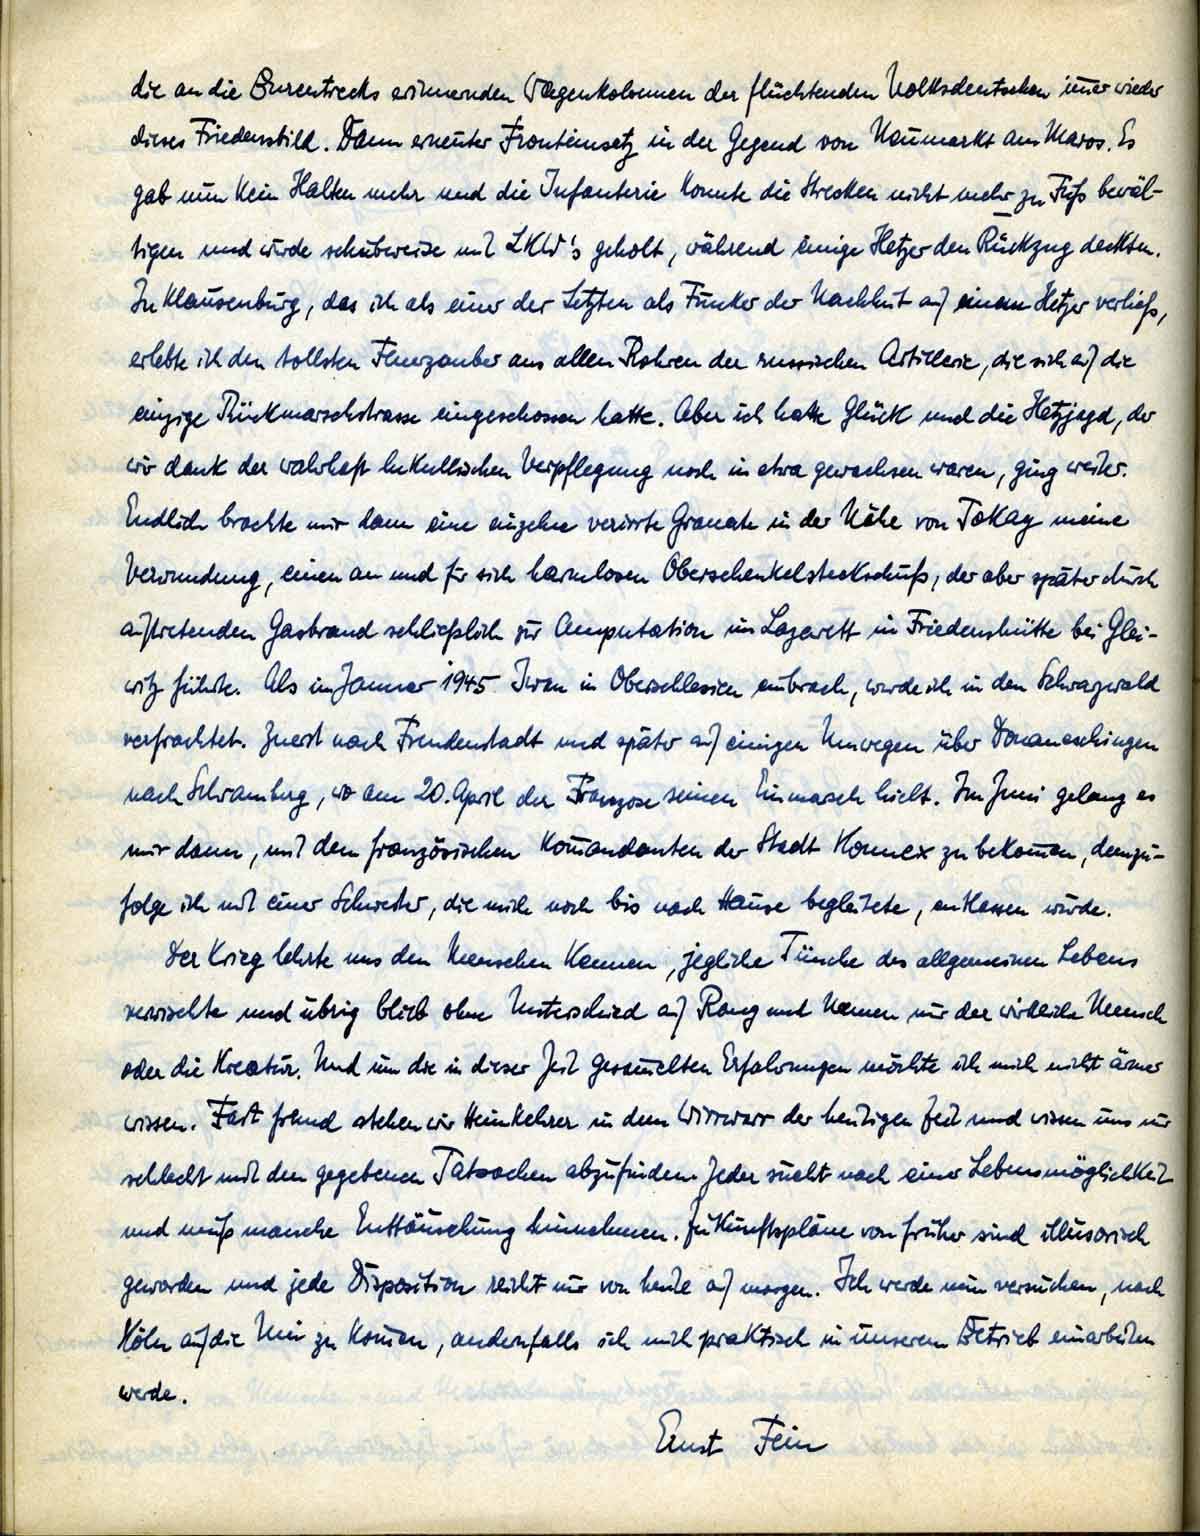 die an die Burentrecks erinnernden Wagenkolonnen der flüchtenden Volksdeutschen immer wieder
dieses Friedensbild. Dann erneuter Fronteinsatz in der Gegend von Neumarkt am Maros. Es
gab nun kein Halten mehr und die Infanterie konnte die Strecken nicht mehr zu Fuß bewäl-
tigen und wurde schubweise mit LKW's geholt, während einige Hetzer den Rückzug deckten.
In Klausenburg, das ich als einer der Letzten als Funker der Nachhut auf einem Hetzer verließ,
erlebte ich den tollsten Feuerzauber aus allen Rohren der russischen Artillerie, die sich auf die
einzige Rückmarschstrasse eingeschossen hatte. Aber ich hatte Glück und die Hetzjagd, der
wir dank der wahrhaft lukullischen Verpflegung noch in etwa gewachsen waren, ging weiter.
Endlich brachte mir dann eine einzelne verirrte Granate in der Nähe von Tokay meine
Verwundung, einen an und für sich harmlosen Oberschenkelsteckschuß, der aber später durch
auftretenden Gasbrand schließlich zur Amputation im Lazarett in Friedenshütte bei Glei-
witz führte. Als im Januar 1945 Iwan in Oberschlesien einbrach, wurde ich in den Schwarzwald
verfrachtet. Zuerst nach Freudenstadt und später auf einigen Umwegen über Donaueschingen
nach Schramberg, wo am 20. April der Franzose seinen Einmarsch hielt. Im Juni gelang es
mir dann, mit dem französischen Kommandanten der Stadt Konnex zu bekommen, demzu-
folge ich mit einer Schwester, die mich noch bis nach Hause begleitete, entlassen wurde.
Der Krieg lehrte uns den Menschen kennen, jegliche Tünche des allgemeinen Lebens
verwischte und übrig blieb ohne Unterschied auf Rang und Namen nur der wirkliche Mensch
oder die Kreatur. Und um die in dieser Zeit gesammelten Erfahrungen möchte ich mich nicht ärmer
wissen. Fast fremd stehen wir Heimkehrer in dem Wirrwarr der heutigen Zeit und wissen uns nur
schlecht mit den gegebenen Tatsachen abzufinden. Jeder sucht nach einer Lebensmöglichkeit
und muß manche Enttäuschung hinnehmen. Zukunftspläne von früher sind illusorisch
geworden und jede Disposition reicht nur von heute auf morgen. Ich werde nun versuchen, nach
Köln auf die Uni zu kommen, andernfalls ich mich praktisch in unserem Betrieb einarbeiten
werde.
Ernst Fein